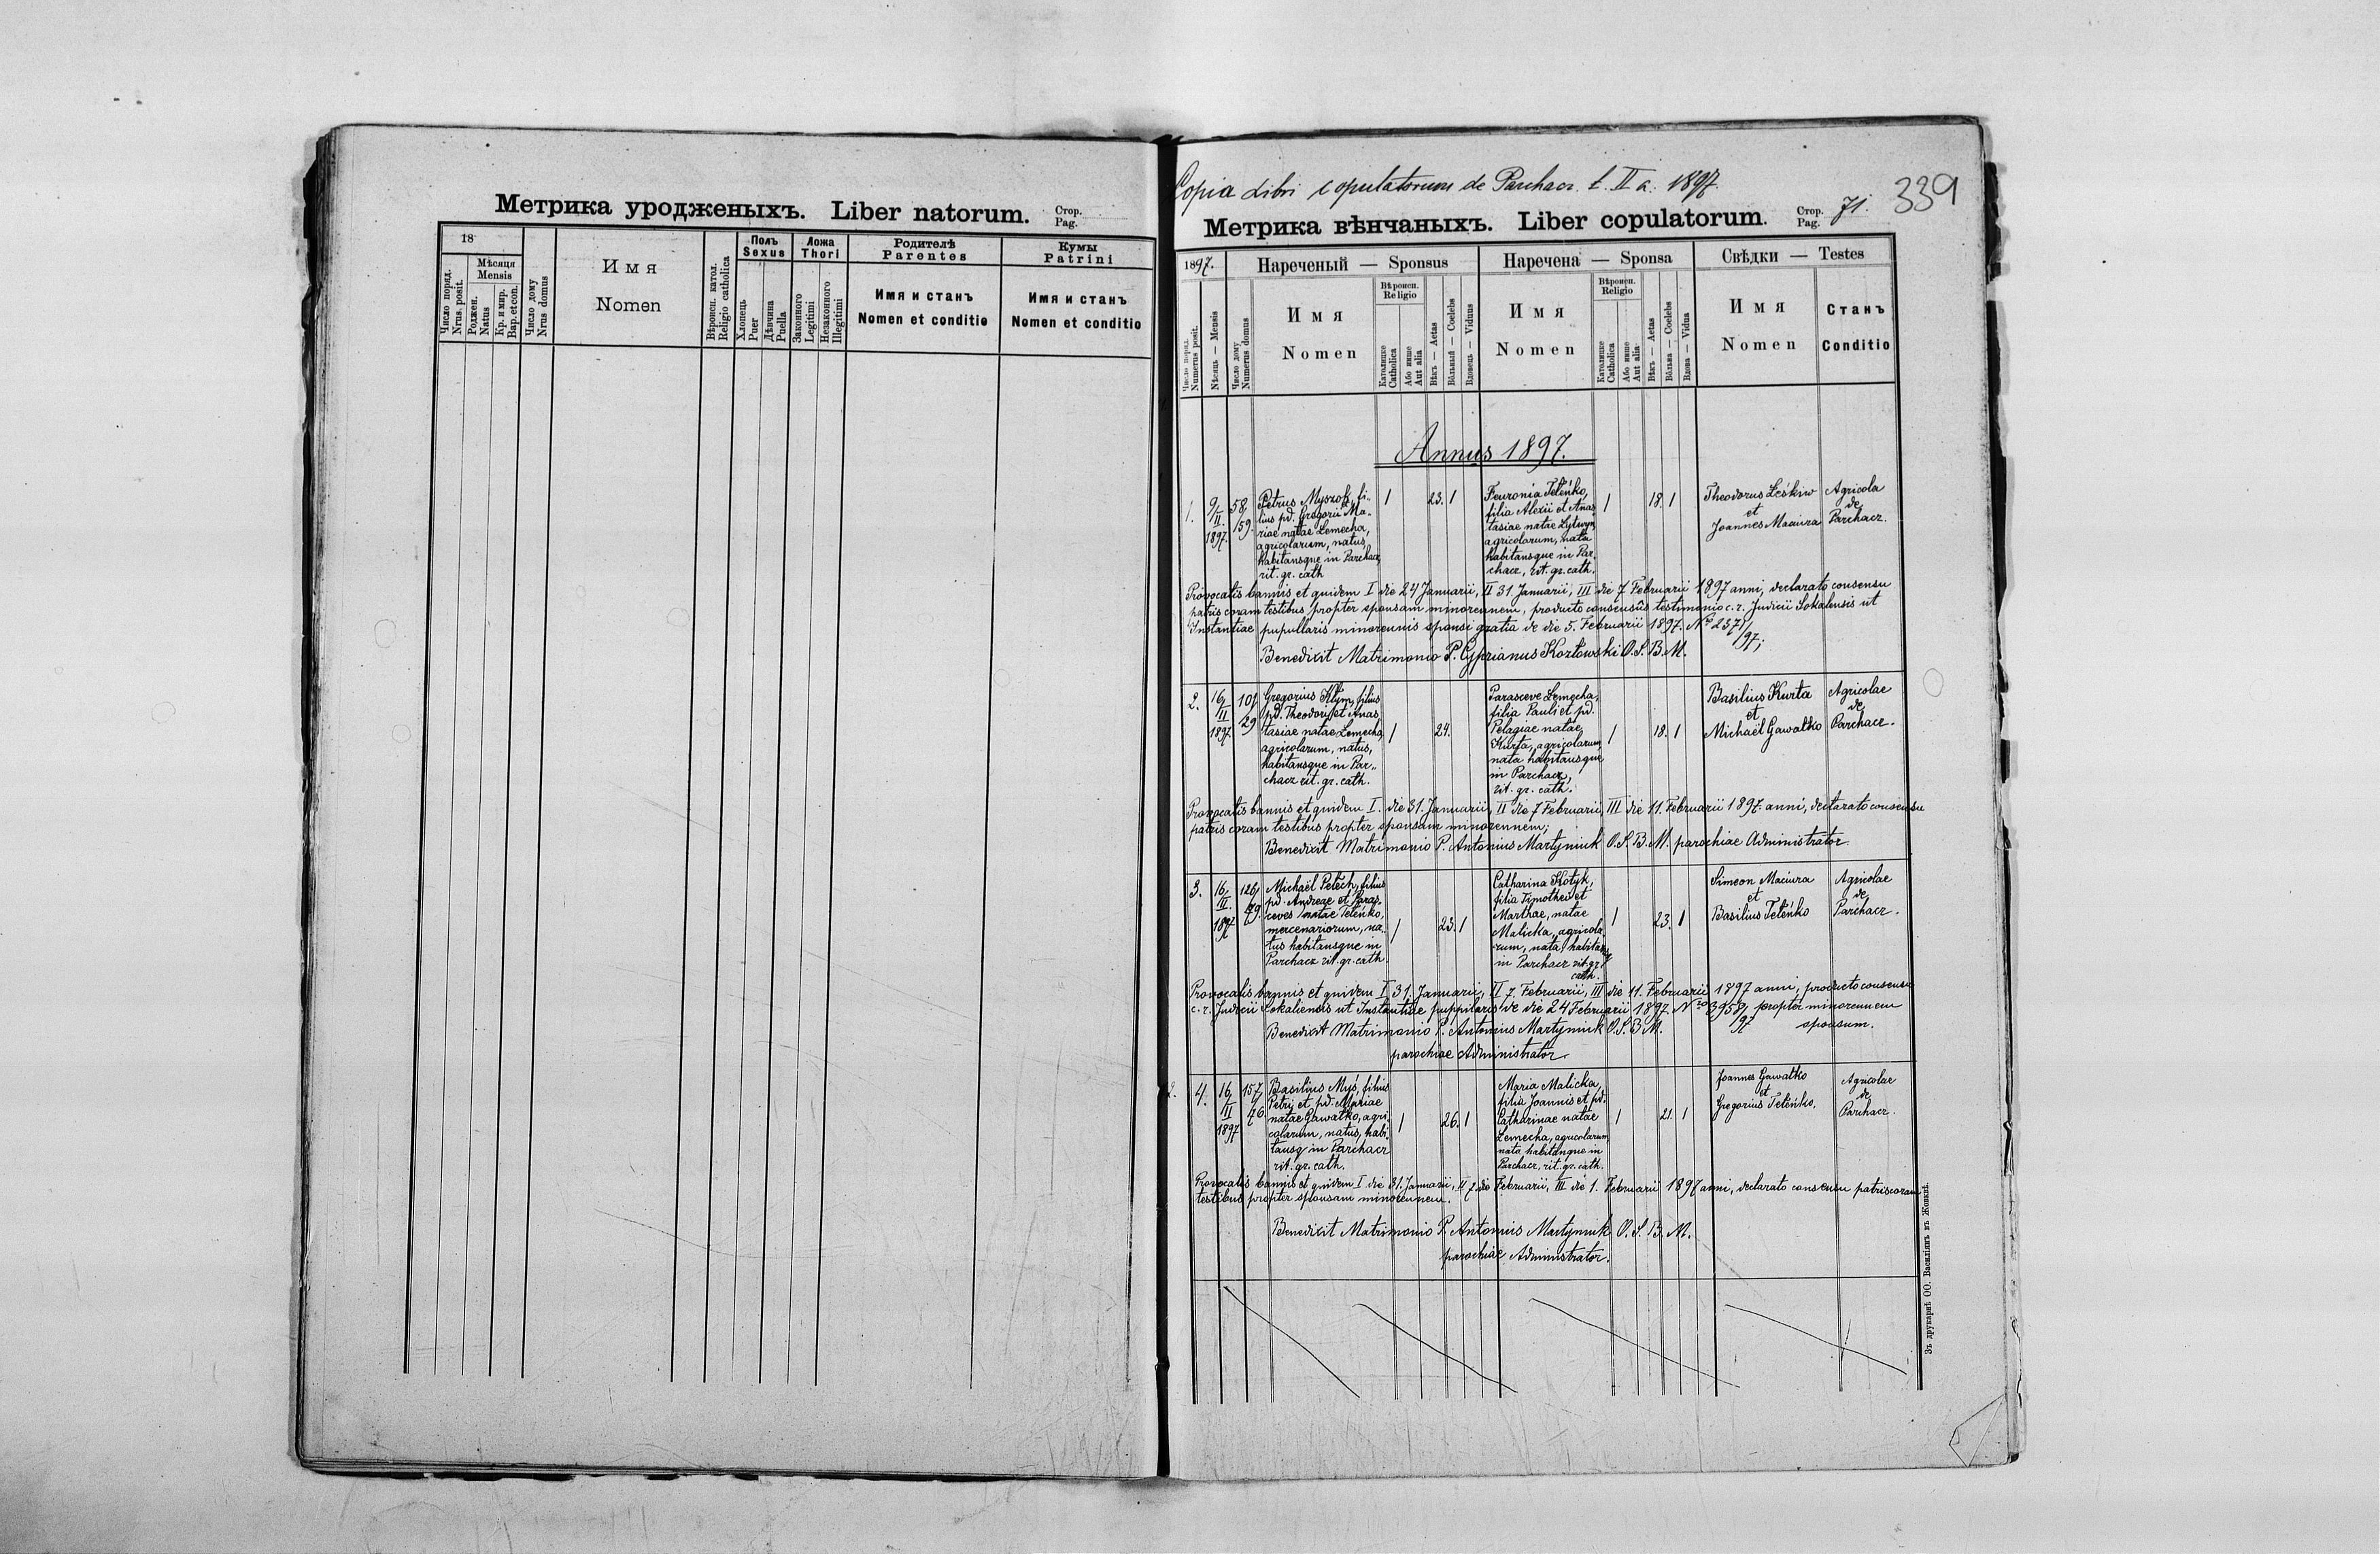 Метрика уродженыхъ. Liber natorum.
Стор.
Pag.
18
Число поряд.
Nrus. posit.
Мѣсяця
Mensis
Роджен.
Natus
Кр. и мир.
Bap. et con.
Число дому
Nrus domus
Имя
Nomen
Вѣроисп. катол.
Religio catholica
Полъ
Sexus
Хлопець
Puer
Дѣвчина
Puella
Ложа
Thori
Законного
Legitimi
Незаконного
Illegitimi
Родителѣ
Parentes
Имя и станъ
Nomen et conditio
Кумы
Patrini
Имя и станъ
Nomen et conditio
Copia Libri copulatorum de Parchacz t. II a. 1897.
339
Метрика вѣнчаныхъ. Liber copulatorum.
Стор.
Pag. 71.
1897.
Число поряд.
Numerus posit.
Мѣсяць — Mensis
Число дому
Numerus domus
Нареченый — Sponsus
Имя
Nomen
Вѣроисп.
Religio
Католицке
Catholica
Або инше
Aut alia
Вѣкъ — Aetas
Вôльный — Coelebs
Вдовець — Viduus
Наречена — Sponsa
Имя
Nomen
Вѣроисп.
Religio
Католицке
Catholica
Або инше
Aut alia
Вѣкъ — Aetas
Вôльна — Coelebs
Вдова — Vidua
Свѣдки — Testes
Имя
Nomen
Станъ
Conditio
Annus 1897.
1.
9/
II.
1897.
58/
159.
Petrus Myszok, fi-
lius pd. Gregorii Ma-
riae natae Lemecha,
agricolarum, natus,
habitansque in Parchacz,
rit. gr. cath
1
23. 1
Feuronia Teleńko,
filia Alexii et Anas
tasiae natae Lytwyn,
agricolarum, nata
habitansque in Par-
chacz, rit. gr. cath.
1
18. 1
Theodorus Leśkiw
et
Joannes Maciura
Agricola
de
Parchacz.
Provocatis bannis et quidem I die 24 Januarii, II 31 Januarii, III die 7 Februarii 1897 anni, declarato consensu
patris coram testibus propter sponsam minorennem, producto consensûs testimonio c. r. Judicii Sokalensis ut
Instantiae pupullaris minorennis sponsi gratia de die 5. Februarii 1897. No 2371/
/97;
Benedixit Matrimonio P. Cyprianus Kozłowski O. S. B. M.
2.
16/
II
1897
101/
29
Gregorius Kłym, filius
pd. Theodori et Anas
tasiae natae Lemecha,
agricolarum, natus,
habitansque in Par-
chacz rit. gr. cath.
1
24.
Parasceve Lemecha,
filia Pauli et pd.
Pelagiae natae
Kurta, agricolarum,
nata habitansque
in Parchacz,
rit. gr. cath.
1
18. 1
Basilius Kurta
et
Michaël Gawalko
Agricolae
de
Parchacz.
Provocatis bannis et quidem I. die 31. Januarii, II die 7 Februarii, III die 11. Februarii 1897. anni, declarato consensu
patris coram testibus propter sponsam minorennem;
Benedixit Matrimonio P. Antonius Martyniuk O. S. B. M. parochiae Administrator.
3.
16/
III.
1897
126/
79
Michaël Pelech, filius
pd. Andreae et Paras-
ceves natae Teleńko,
mercenariorum, na-
tus habitansque in
Parchacz rit. gr. cath.
1
23. 1
Catharina Kotyk,
filia Timothei et
Marthae, natae
Malicka, agricola-
rum, nata habitansq
in Parchacz rit. gr.
cath.
1
23. 1
Simeon Maciura
et
Basilius Teleńko
Agricolae
de
Parchacz.
Provocatis bannis et quidem I 31. Januarii, II 7. Februarii, III die 11. Februarii 1897 anni, producto consensu
c. r. Judicii Sokaliensis ut Instantiae puppilaris de die 24 Februarii 1897. Nro 3958/ propter minorennem
97 sponsum.
Benedixit Matrimonio P. Antonius Martyniuk O. S. B. M.
parochiae Administrator
4.
16/
III
1897
157/
76.
Basilius Myś, filius
Petri et pd. Mariae
natae Gawalko, agri-
colarum, natus, habi-
tansq in Parchacz
rit. gr. cath.
1
26. 1
Maria Malicka,
filia Joannis et pd.
Catharinae natae
Lemecha, agricolarum,
nata habitanque in
Parchacz, rit. gr. cath.
1
21. 1
Joannes Gawalko
et
Gregorius Teleńko.
Agricolae
de
Parchacz.
Provocatis bannis et quidem I die 31. Januarii, II 7. die Februarii, III die 1. Februarii 1897 anni, declarato consensu patris coram
testibus propter sponsam minorennem.
Benedixit Matrimonio P. Antonius Martyniuk O. S. B. M.
parochiae Administrator.
Зъ друкарнѣ ОО. Василіянъ въ Жовквѣ.